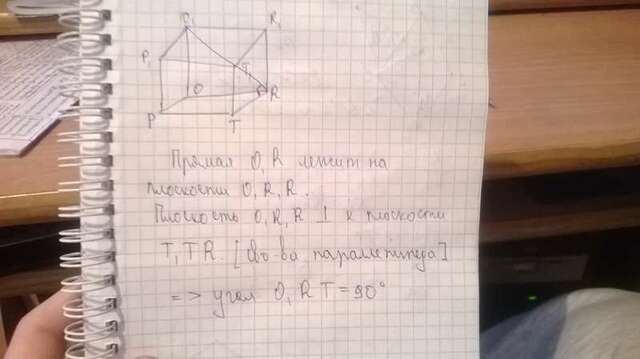 O₁ R₁
P₁ T₁
O R
P T
Прямая O₁R лежит на
плоскости O₁R₁R.
Плоскость O₁R₁R ⊥ к плоскости
T₁TR. [св-ва параллепипеда]
=> угол O₁RT = 90°